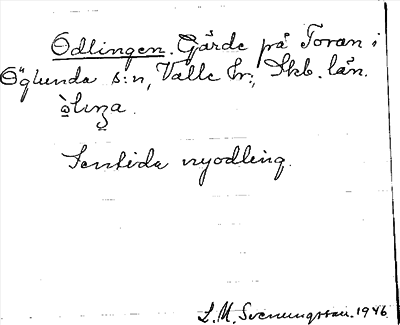 Odlingen. Gärde på Toran i
Öglunda s:n, Valle hr., Skb. län.
Sentida nyodling.
L. M. Svenungsson. 1946